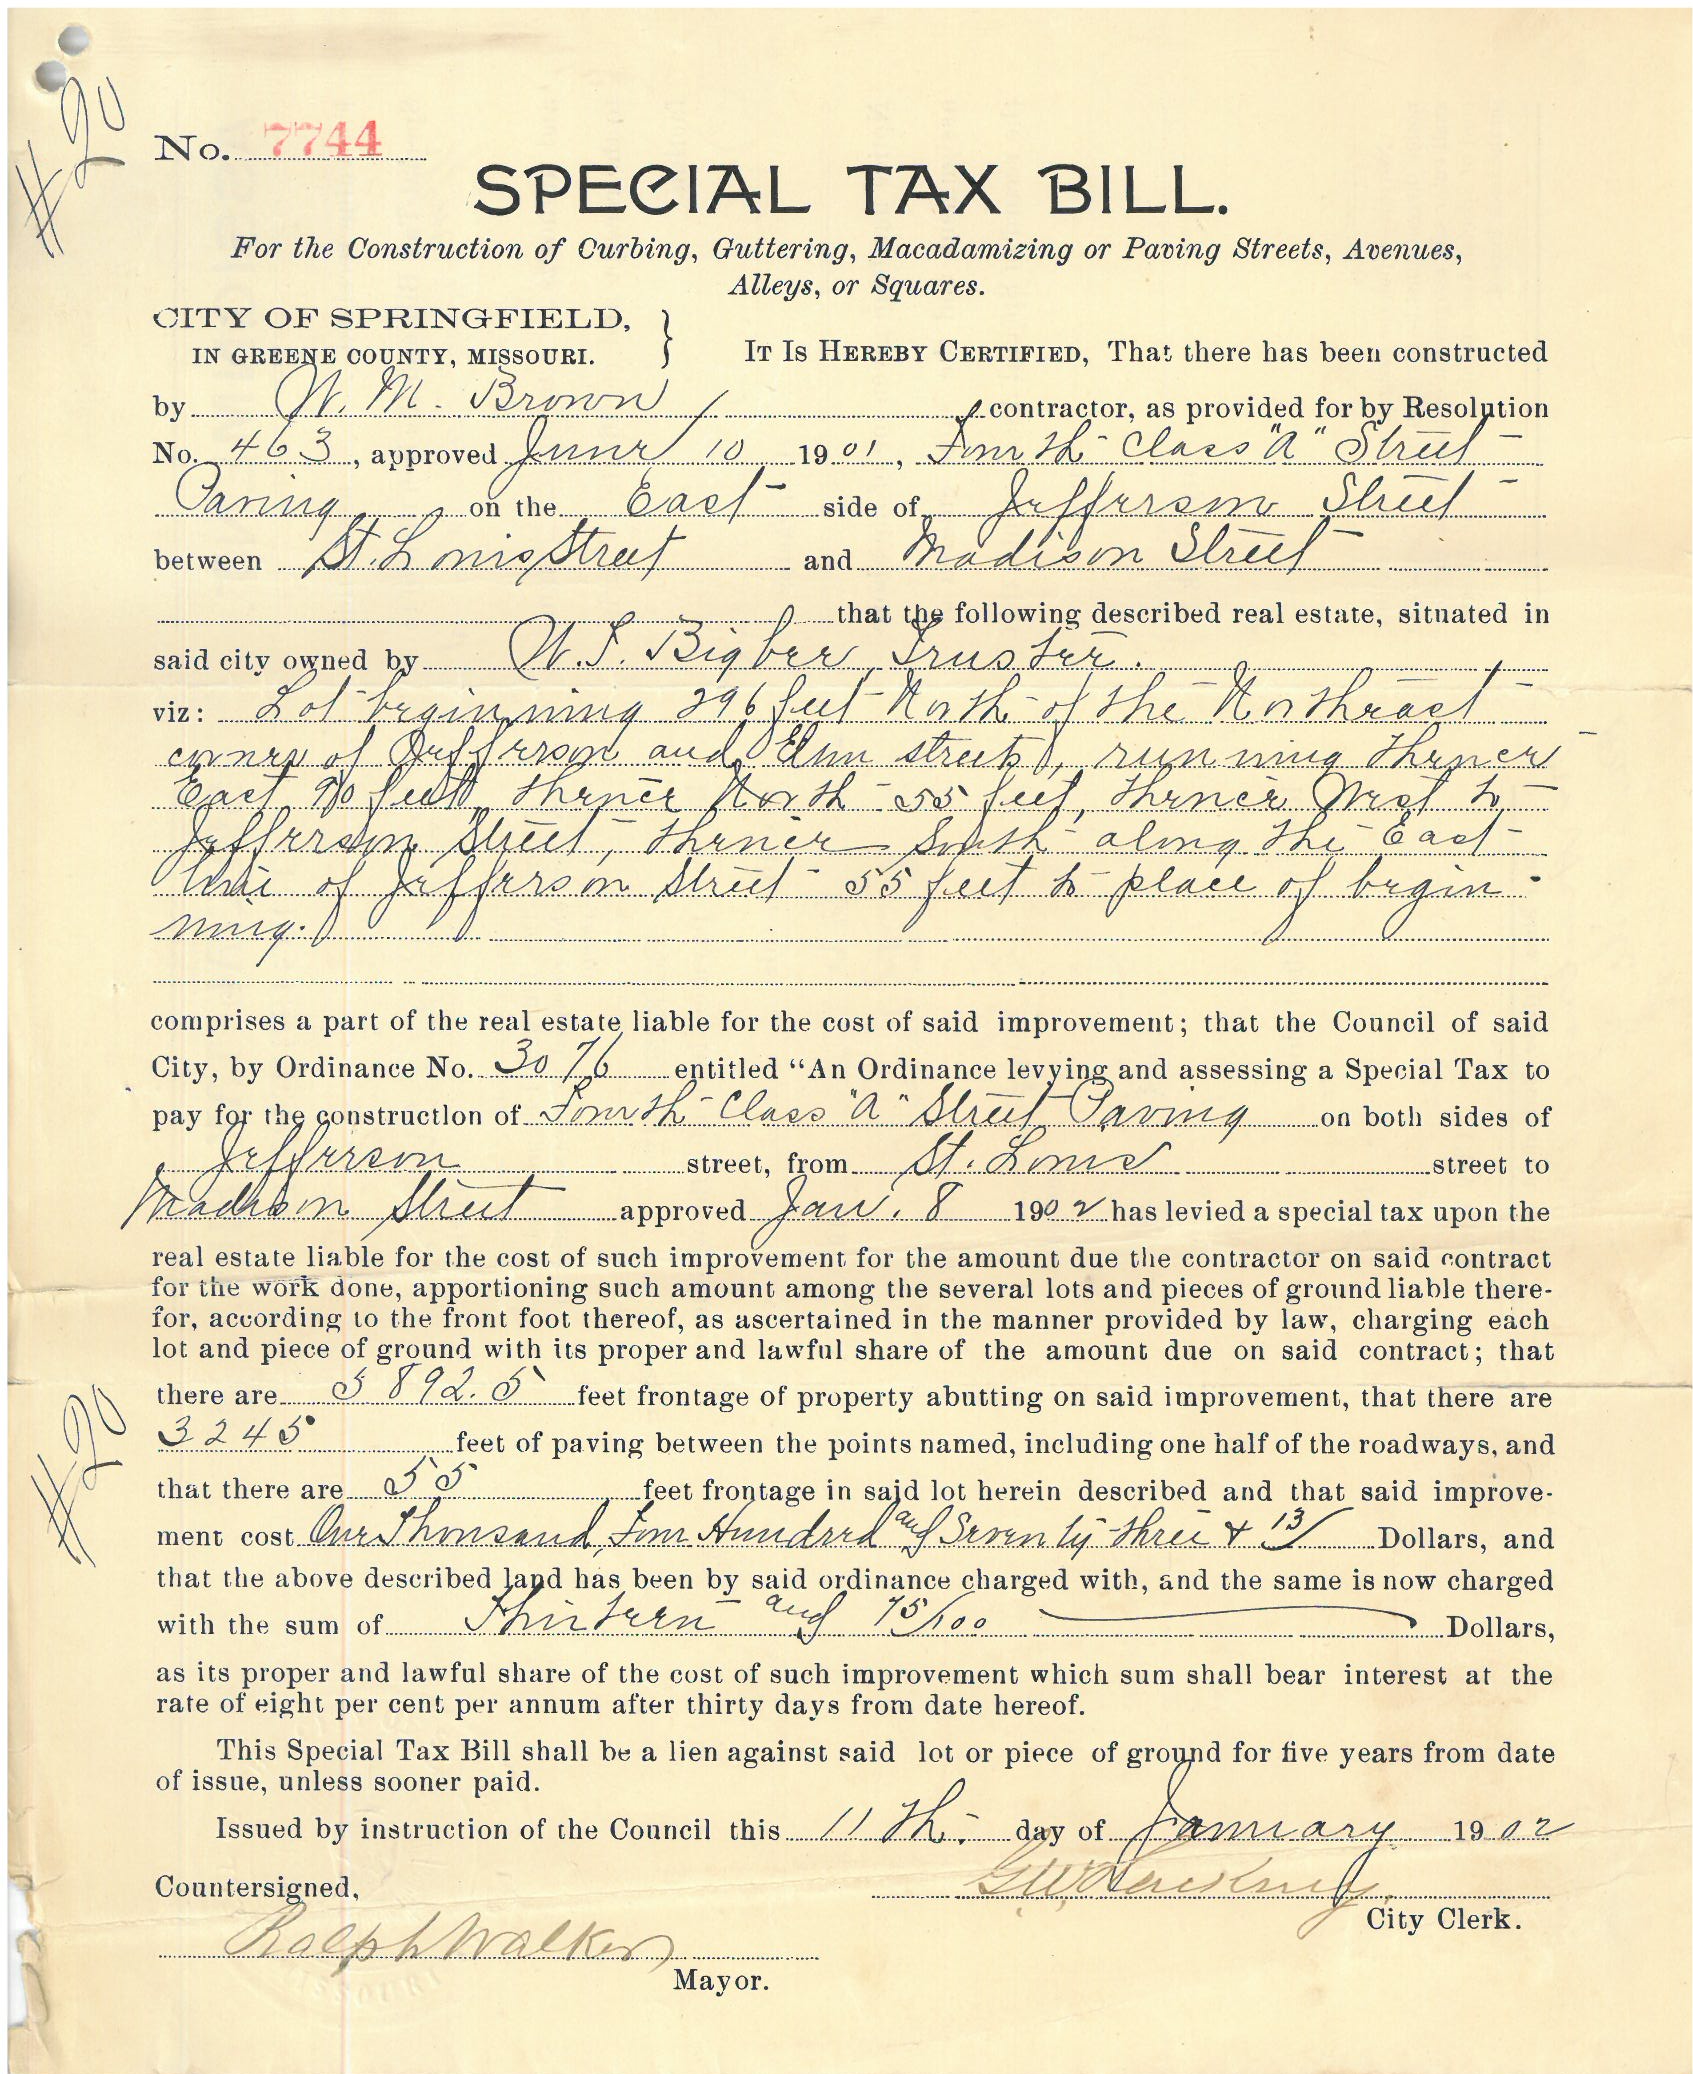 #20
No. 7744
SPECIAL TAX BILL.
For the Construction of Curbing, Guttering, Macadamizing or Paving Streets, Avenues,
Alleys, or Squares.
CITY OF SPRINGFIELD,
IN GREENE COUNTY, MISSOURI. } IT IS HEREBY CERTIFIED, That there has been constructed
by W. M. Brown contractor, as provided for by Resolution
No. 463, approved June 10 1901, Fourth Class "A" Street
Paving on the East side of Jefferson Street
between St. Louis Street and Madison Street
that the following described real estate, situated in
said city owned by W. S. Bigbee Trustee.
viz: Lot beginning 296 feet North of the Northeast
corner of Jefferson and Elm streets, running thence
East 90 feet, thence North 55 feet, thence West to
Jefferson Street, thence South along the East
line of Jefferson Street 55 feet to place of begin-
ning.
comprises a part of the real estate liable for the cost of said improvement; that the Council of said
City, by Ordinance No. 3076 entitled "An Ordinance levying and assessing a Special Tax to
pay for the construction of Fourth Class "A" Street Paving on both sides of
Jefferson street, from St. Louis street to
Madison Street approved Jan. 8 1902 has levied a special tax upon the
real estate liable for the cost of such improvement for the amount due the contractor on said contract
for the work done, apportioning such amount among the several lots and pieces of ground liable there-
for, according to the front foot thereof, as ascertained in the manner provided by law, charging each
lot and piece of ground with its proper and lawful share of the amount due on said contract; that
there are 5892.5 feet frontage of property abutting on said improvement, that there are
3245 feet of paving between the points named, including one half of the roadways, and
#20
that there are 55 feet frontage in said lot herein described and that said improve-
ment cost One Thousand, Four Hundred and Seventy three & 13/ Dollars, and
that the above described land has been by said ordinance charged with, and the same is now charged
with the sum of Thirteen and 75/100 Dollars,
as its proper and lawful share of the cost of such improvement which sum shall bear interest at the
rate of eight per cent per annum after thirty days from date hereof.
This Special Tax Bill shall be a lien against said lot or piece of ground for five years from date
of issue, unless sooner paid.
Issued by instruction of the Council this 11th. day of January 1902
Countersigned,
City Clerk.
Ralph Walker
Mayor.
MISSOURI